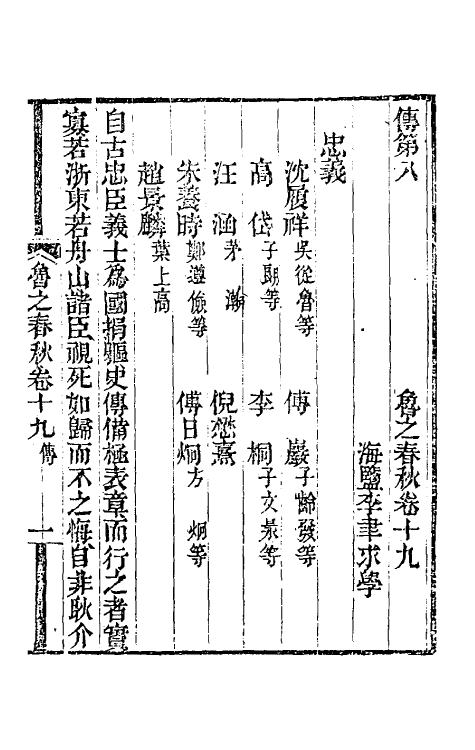 傳第八　魯之春秋卷十九
海鹽李聿求學
忠義
沈履祥吳從魯等　傅　巖子齡發等
高　岱子朗等　李　桐子文㫤等
汪　涵茅　瀚　倪懋熹
朱養時鄭遵儉等　傅日炯方　炯等
趙景麟葉上高
自古忠臣義士爲國捐軀史傳備極表章而行之者實
寡若浙東若舟山諸臣視死如歸而不之悔自非耿介
魯之春秋卷十九　傳　一